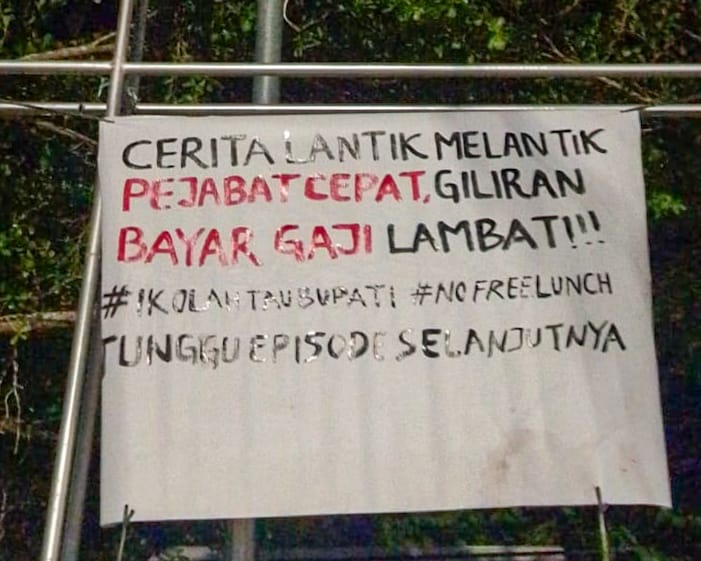 CERITA LANTIK MELANTIK
PEJABAT CEPAT, GILIRAN
BAYAR GAJI LAMBAT!!!
#IKOLAHTAUBUPATI #NOFREELUNCH
TUNGGU EPISODE SELANJUTNYA